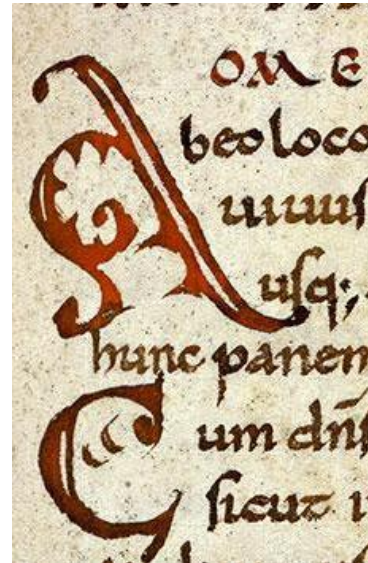 A OM E
beo loco
usq;
hunc panem
Cum dn̄
sicut i